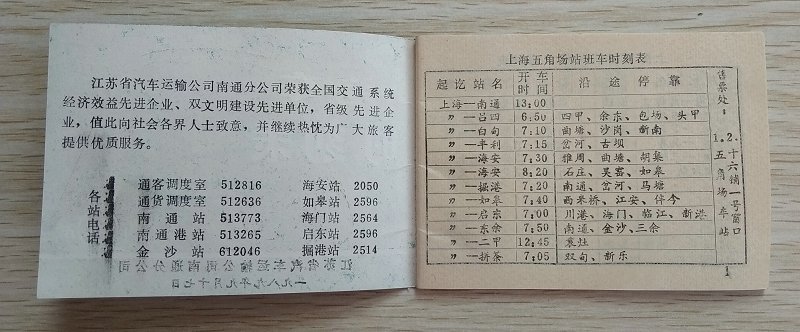 江苏省汽车运输公司南通分公司荣获全国交通系统
经济效益先进企业、双文明建设先进单位，省级先进企
业，值此向社会各界人士致意，并继续热忱为广大旅客
提供优质服务。
各站电话
通客调度室 512816 海安站 2050
通货调度室 512636 如皋站 2596
南通站 513773 海门站 2564
南通港站 513265 启东站 2596
金沙站 612046 掘港站 2514
江苏省汽车运输公司南通分公司
一九八九年九月十七日
上海五角场站班车时刻表
起讫站名 开车时间 沿途停靠
上海—南通 13:00
〃—吕四 6:50 四甲、余东、包场、头甲
〃—白甸 7:10 曲塘、沙岗、新南
〃—半利 7:15 岔河、古坝
〃—海安 7:30 雅周、曲塘、胡集
〃—海安 8:20 石庄、吴窑、如皋
〃—掘港 7:20 南通、岔河、马塘
〃—如皋 7:40 西来桥、江安、伴今
〃—启东 7:00 川港、海门、临江、新港
〃—东余 7:50 南通、金沙、三余
〃—二甲 12:45 袁灶
〃—拼茶 7:05 双甸、新乐
售票处：
1.五角场车站
2.十六铺一号窗口
1